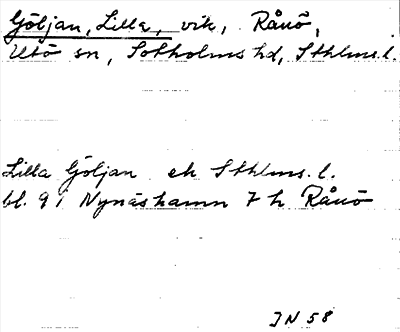 Göljan, Lilla, vik, Rånö,
Utö sn, Sotholms hd, Sthlms. l.
Lilla Göljan ek Sthlms. l.
bl. 91 Nynäshamn 7 h Rånö
IN 58